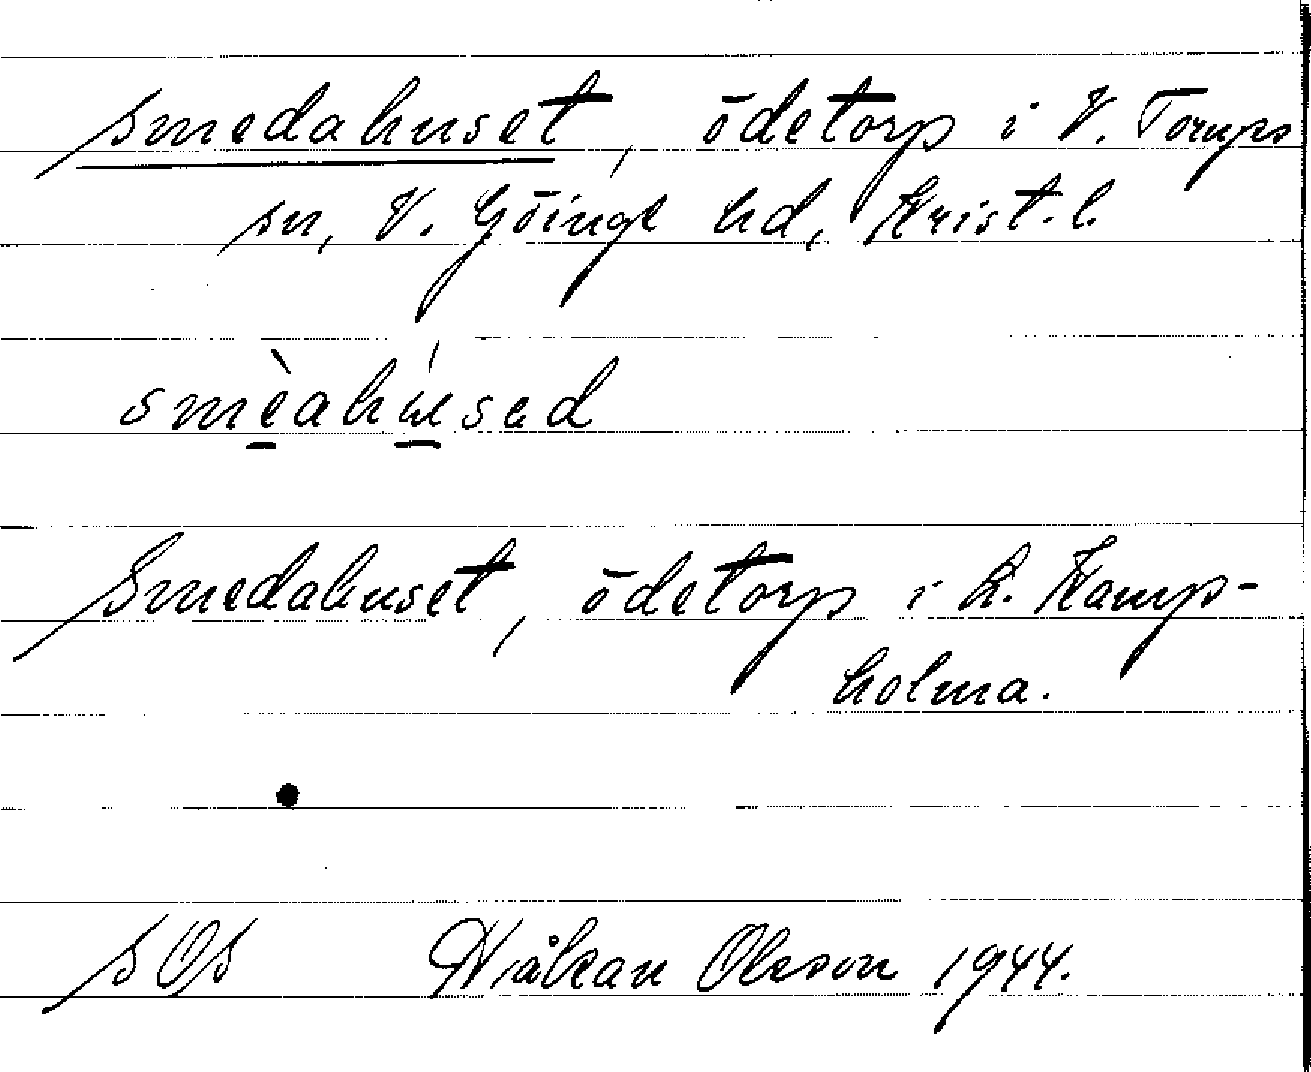 Smedahuset, ödetorp i V. Torups
sn, V. Göinge hd, Krist. l.
smèahúsed
Smedahuset, ödetorp i L. Kamp-
holma.
SOS Håkan Olsson 1944.